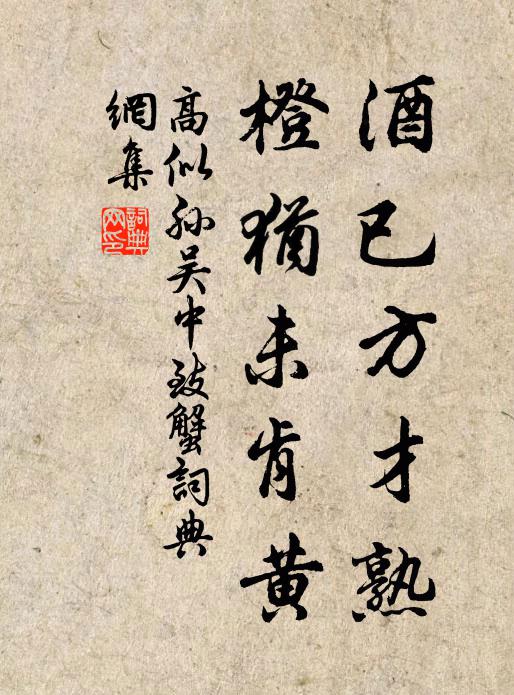 酒已方才熟
橙猶未肯黃
高似孙吴中致蟹詞典
網集
詞典網印